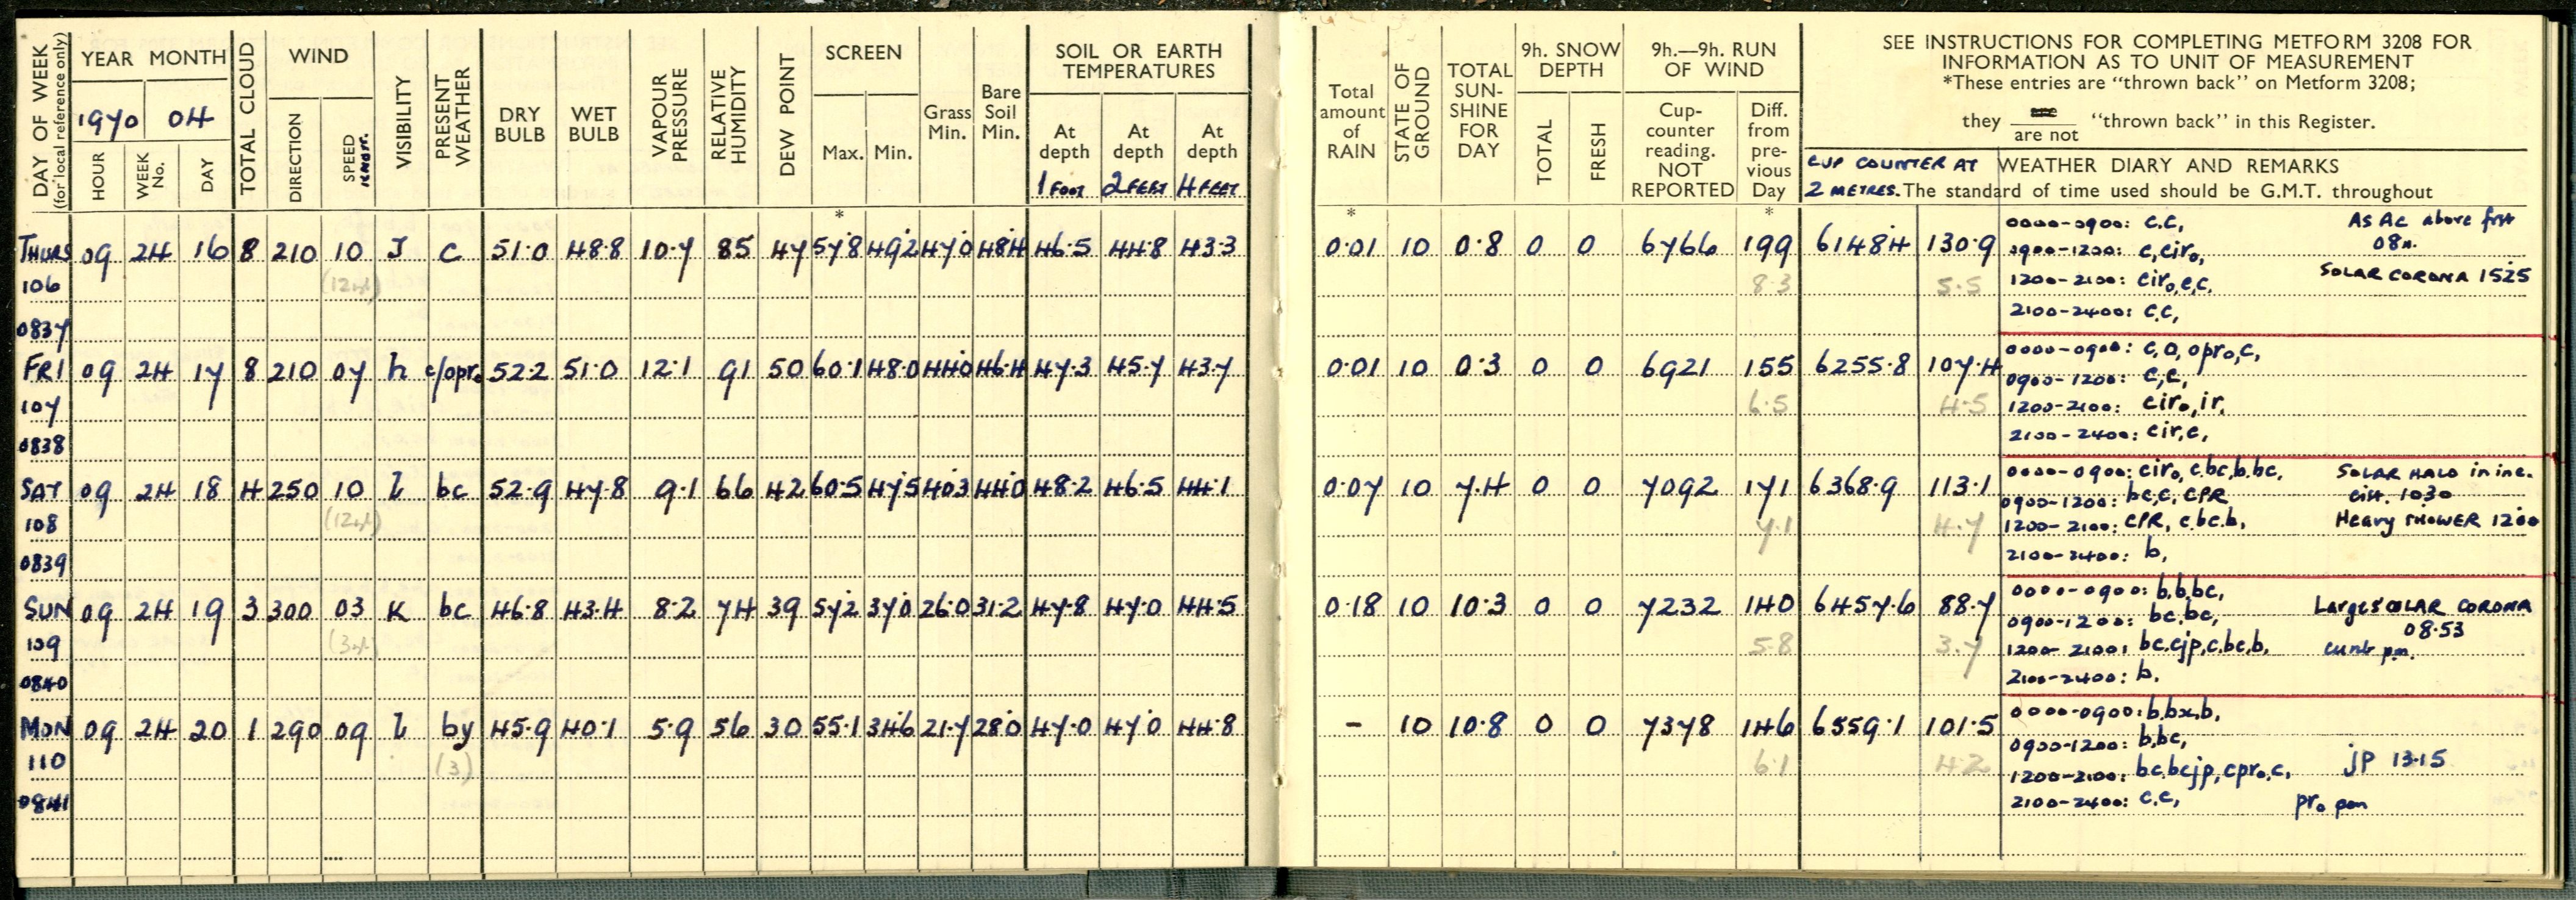 DAY OF WEEK
(for local reference only)
YEAR MONTH
1970 04
HOUR WEEK No. DAY
TOTAL CLOUD
WIND
DIRECTION SPEED KNOTS.
VISIBILITY
PRESENT WEATHER
DRY BULB
WET BULB
VAPOUR PRESSURE
RELATIVE HUMIDITY
DEW POINT
SCREEN
Max. Min.
Grass Min.
Bare Soil Min.
SOIL OR EARTH TEMPERATURES
At depth 1 FOOT
At depth 2 FEET
At depth 4 FEET
Total amount of RAIN
STATE OF GROUND
TOTAL SUN-SHINE FOR DAY
9h. SNOW DEPTH
TOTAL FRESH
9h.—9h. RUN OF WIND
Cup-counter reading. NOT REPORTED
Diff. from pre-vious Day
SEE INSTRUCTIONS FOR COMPLETING METFORM 3208 FOR
INFORMATION AS TO UNIT OF MEASUREMENT
*These entries are "thrown back" on Metform 3208;
they are not "thrown back" in this Register.
CUP COUNTER AT 2 METRES.
WEATHER DIARY AND REMARKS
The standard of time used should be G.M.T. throughout
* * *
THURS 09 24 16 8 210 10 J c 51.0 48.8 10.7 85 47 57.8 49.2 47.0 48.4 46.5 44.8 43.3 0.01 10 0.8 0 0 6766 199 61484 130.9
106 (12kt) 8.3 5.5
0837
0000-0900: c.c,
0900-1200: c,ciro,
1200-2100: ciro,c,c.
2100-2400: c.c,
As Ac above frst
08h.
SOLAR CORONA 1525
FRI 09 24 17 8 210 07 h c/opro 52.2 51.0 12.1 91 50 60.1 48.0 44.0 46.4 47.3 45.7 43.7 0.01 10 0.3 0 0 6921 155 6255.8 107.4
107 6.5 4.5
0838
0000-0900: c,o,opro,c,
0900-1200: c,c,
1200-2100: ciro,ir,
2100-2400: cir,c,
SAT 09 24 18 4 250 10 l bc 52.9 47.8 9.1 66 42 60.5 47.5 40.3 44.0 48.2 46.5 44.1 0.07 10 7.4 0 0 7092 171 6368.9 113.1
108 (12kt) 7.1 4.7
0839
0000-0900: ciro, c.bc,b.bc,
0900-1200: bc,c, CPR
1200-2100: CPR, c.bc.b,
2100-2400: b,
SOLAR HALO in inc.
cist. 1030
Heavy SHOWER 1200
SUN 09 24 19 3 300 03 K bc 46.8 43.4 8.2 74 39 57.2 37.0 26.0 31.2 47.8 47.0 44.5 0.18 10 10.3 0 0 7232 140 6457.6 88.7
109 (3kt) 5.8 3.7
0840
0000-0900: b,b,bc,
0900-1200: bc,bc,
1200-2100: bc.cjp,c.bc,b,
2100-2400: b.
Large SOLAR CORONA
08.53
cunb pm.
MON 09 24 20 1 290 09 l by 45.9 40.1 5.9 56 30 55.1 34.6 21.7 28.0 47.0 47.0 44.8 - 10 10.8 0 0 7378 146 6559.1 101.5
110 (3) 6.1 4.2
0841
0000-0900: b.bx.b,
0900-1200: b,bc,
1200-2100: bc.bcjp,cpro.c,
2100-2400: c.c,
jp 13.15
pro pm